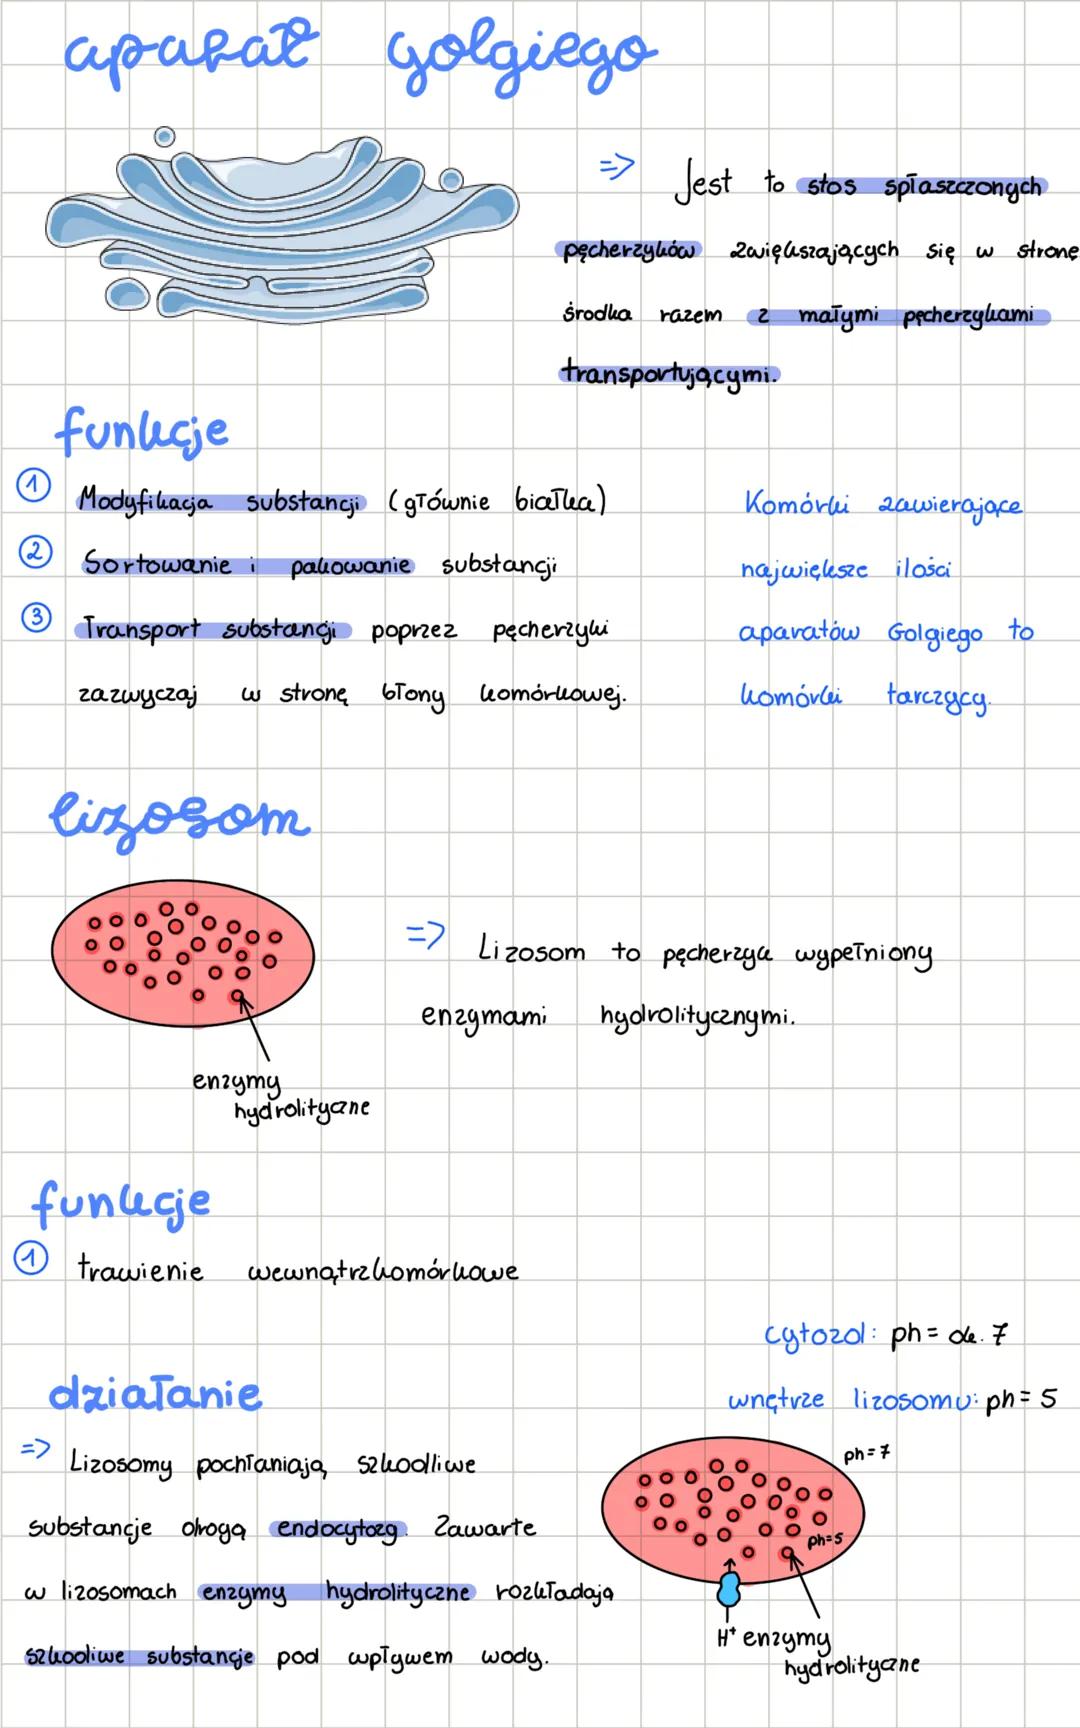 aparat Golgiego
=> Jest to stos spłaszczonych
pęcherzyków zwiększających się w stronę
środka razem z małymi pęcherzykami
transportującymi.
funkcje
1 Modyfikacja substancji (głównie białka)
2 Sortowanie i pakowanie substancji
3 Transport substancji poprzez pęcherzyki
zazwyczaj w stronę błony komórkowej.
Komórki zawierające
największe ilości
aparatów Golgiego to
komórki tarczycy.
lizosom
=> Lizosom to pęcherzyk wypełniony
enzymami hydrolitycznymi.
enzymy
hydrolityczne
funkcje
1 trawienie wewnątrzkomórkowe
cytozol: ph = ok. 7
wnętrze lizosomu: ph = 5
działanie
=> Lizosomy pochłaniają szkodliwe
substancje drogą endocytozy. Zawarte
w lizosomach enzymy hydrolityczne rozkładają
szkodliwe substancje pod wpływem wody.
ph = 7
ph=5
H⁺ enzymy
hydrolityczne